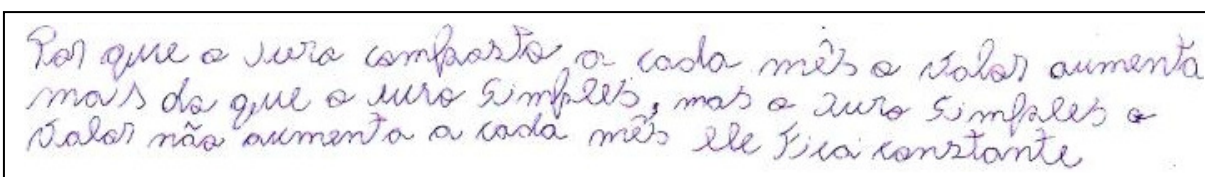 Por que o juro composto, a cada mês o valor aumenta
mais do que o juro simples, mas o juro simples o
valor não aumenta a cada mês ele fica constante